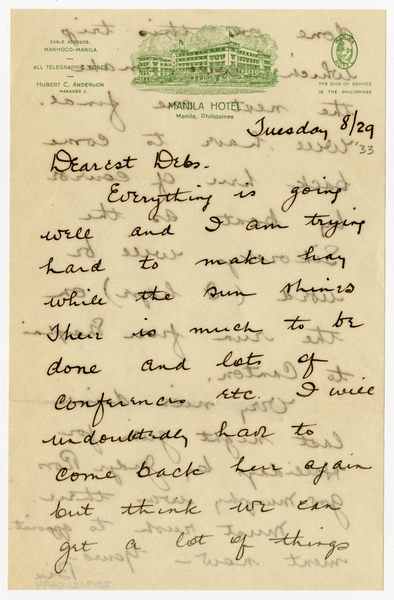 CABLE ADDRESS,
MANHOCO-MANILA
ALL TELEGRAPHIC CODES
HUBERT C. ANDERSON
MANAGER
MANILA HOTEL
Manila, Philippines
THE SIGN OF SERVICE
IN THE PHILIPPINES
Tuesday 8/29
'33
Dearest Debs.
Everything is going
well and I am trying
hard to make hay
while the sun shines
Their is much to be
done and lots of
conferences etc. I will
undoubtedly have to
come back here again
but think we can
get a lot of things